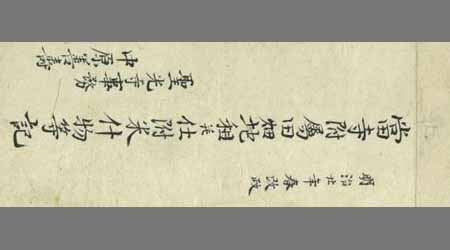 明治廿年春改政
當寺附屬田畑地租并仕附米什物等記
聖光寺事務
中原善壽